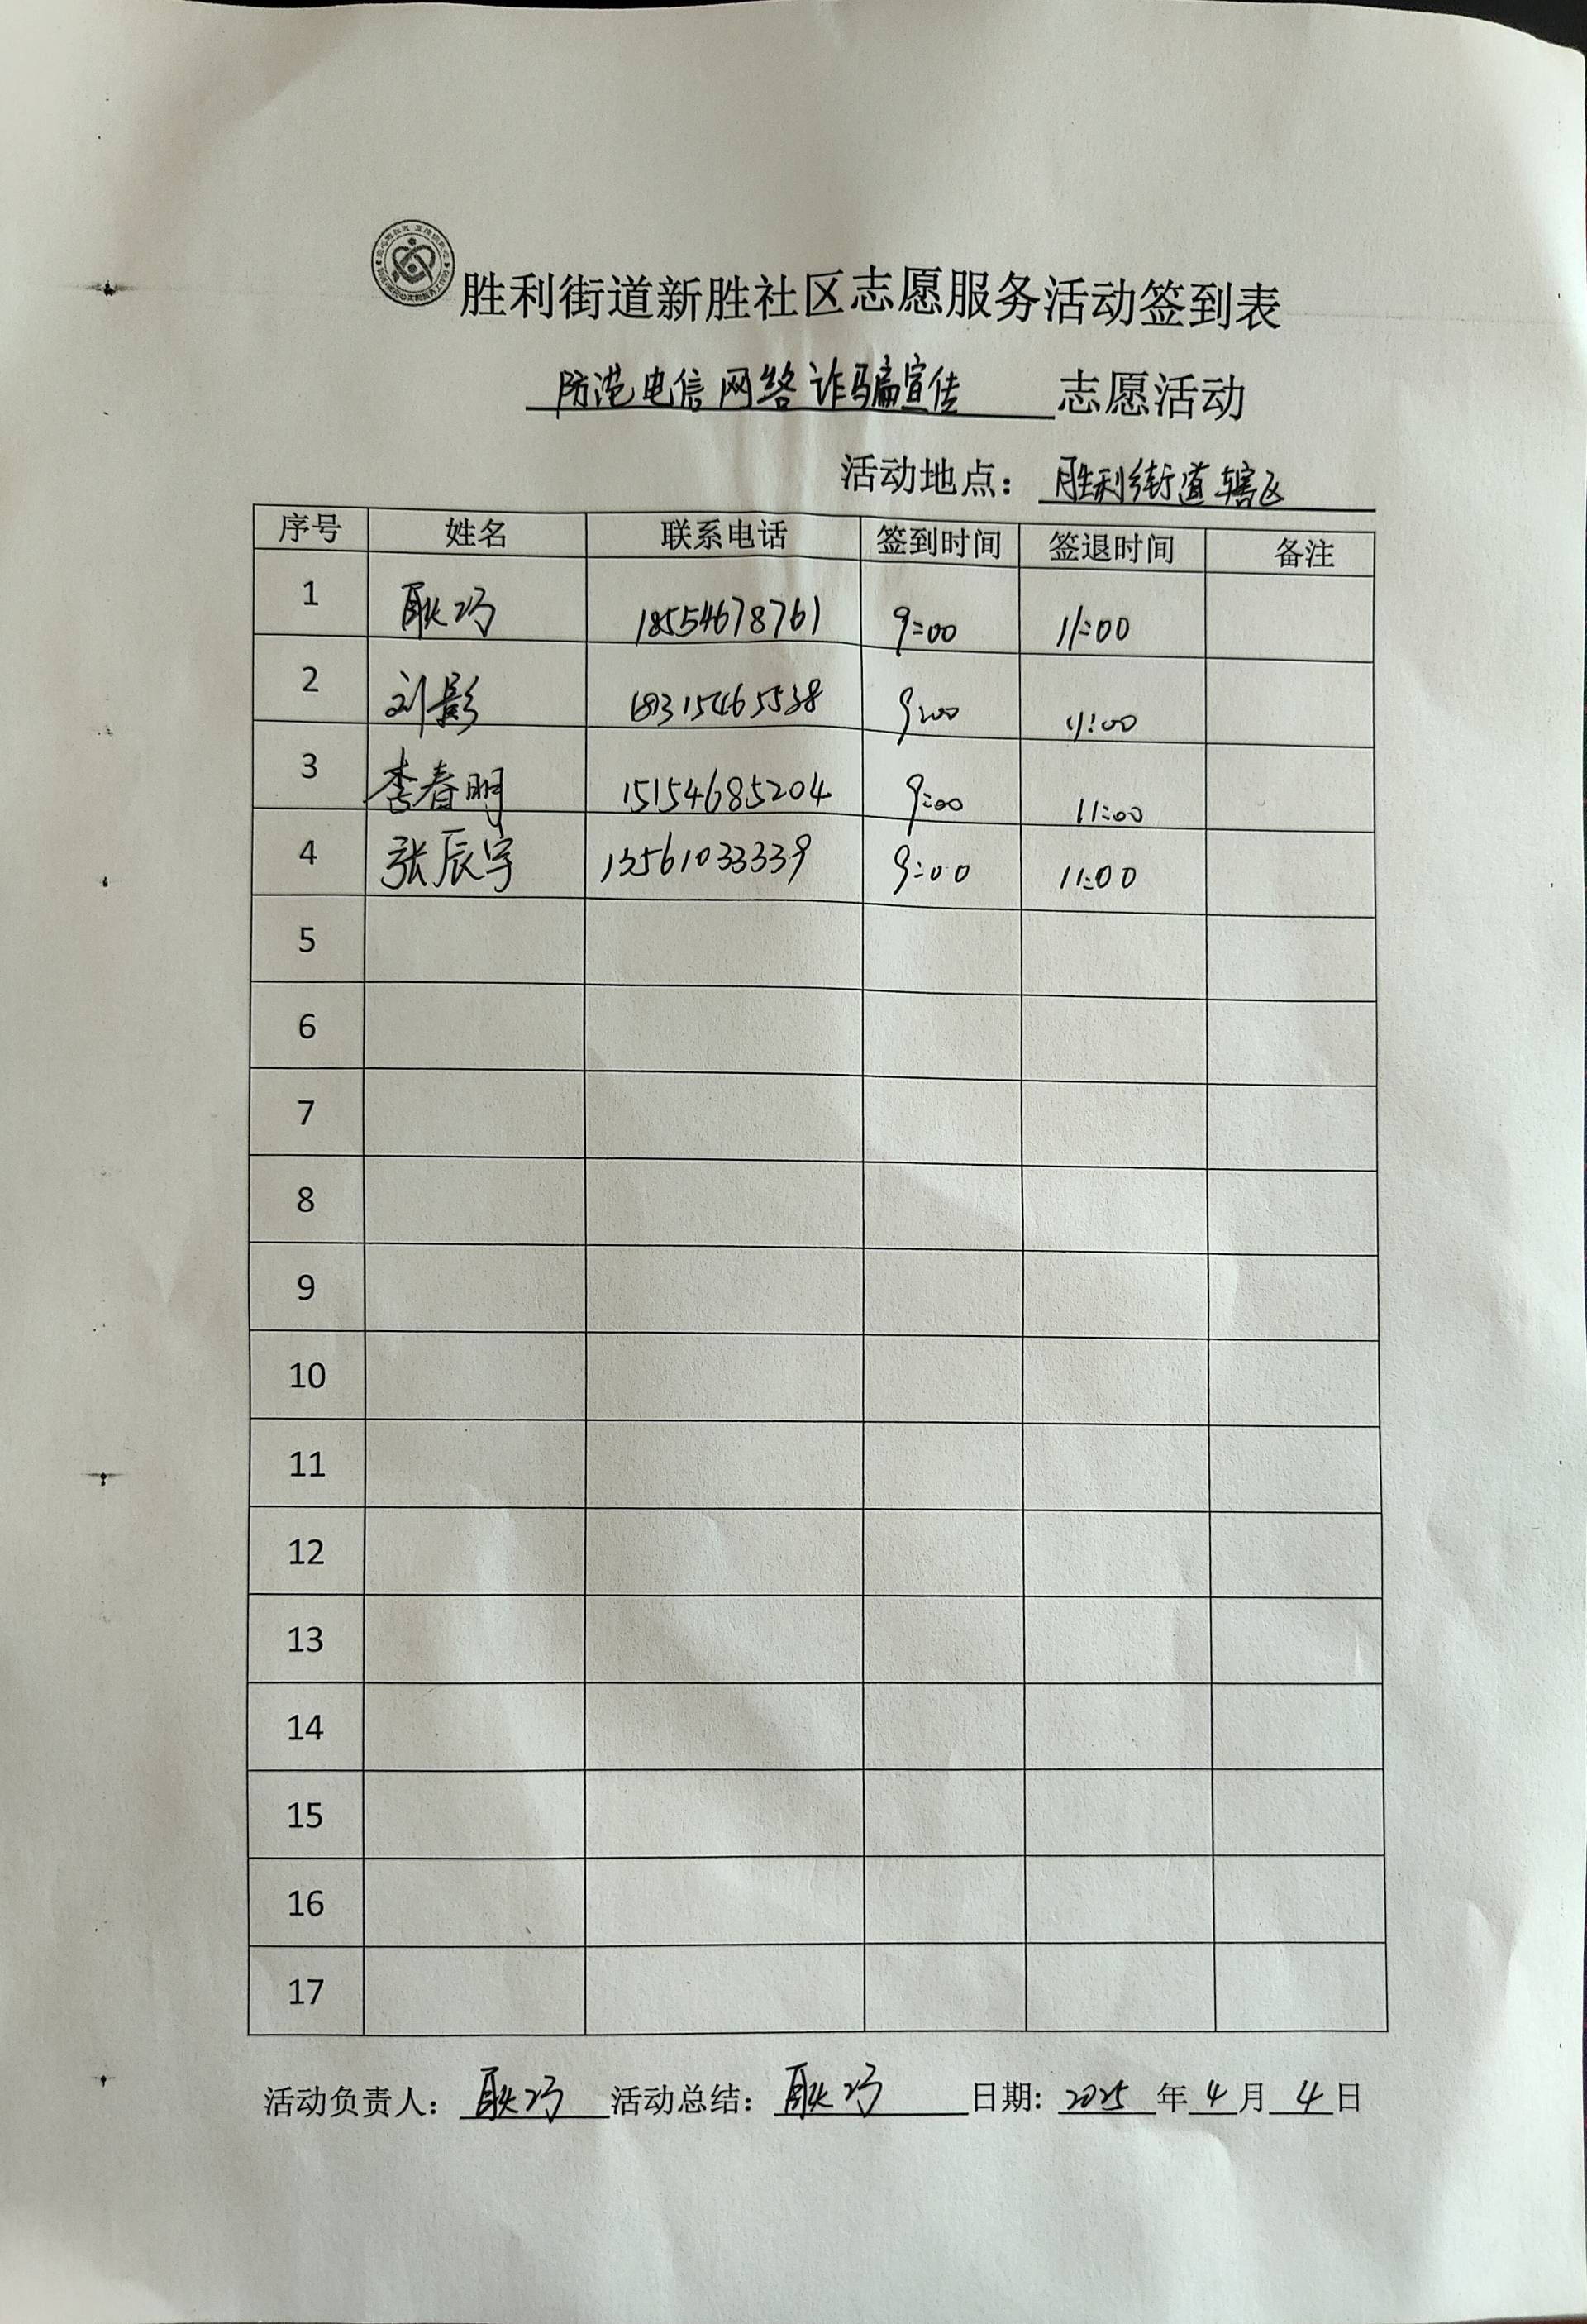 胜利街道新胜社区志愿服务活动签到表
防范电信网络诈骗宣传 志愿活动
活动地点：胜利街道辖区
序号 姓名 联系电话 签到时间 签退时间 备注
1 耿巧 18554678761 9:00 11:00
2 刘影 18315465538 9:00 11:00
3 李春明 15154685204 9:00 11:00
4 张辰宇 13561033339 9:00 11:00
5
6
7
8
9
10
11
12
13
14
15
16
17
活动负责人：耿巧 活动总结：耿巧 日期: 2025 年 4 月 4 日